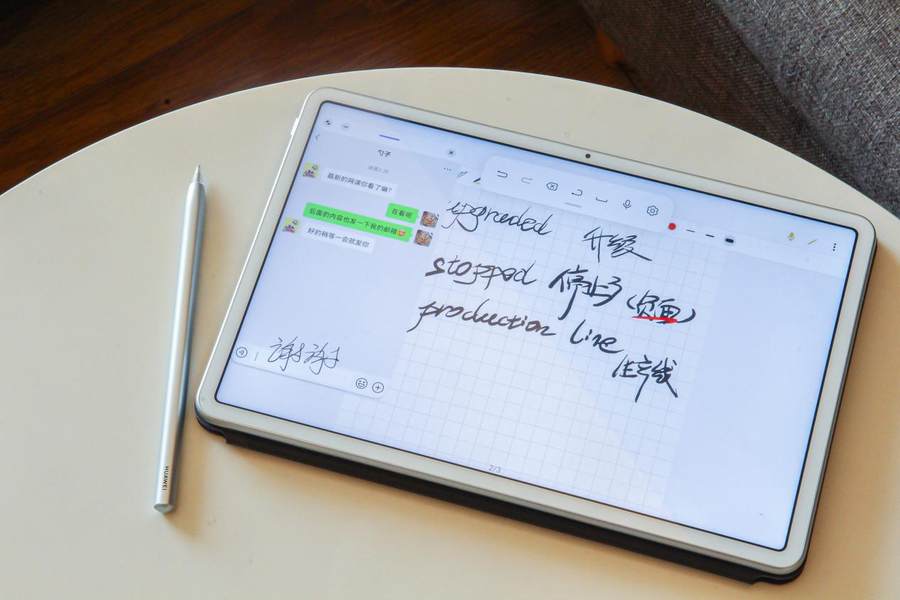 勺子
最新的网课你看了嘛?
在看呢
后面的内容也发一下我的邮箱
好的稍等一会就发你
谢谢
upgraded 升级
stopped 停止了(负面)
production line
生产线
2/3
HUAWEI